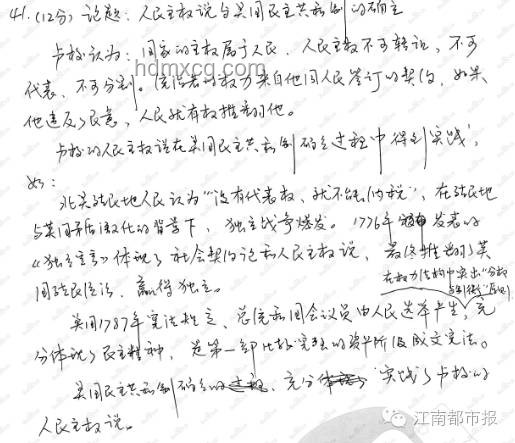 41.(12分) 论题：人民主权说与美国民主共和制的确立
卢梭认为：国家的主权属于人民，人民主权不可转让，不可
代表，不可分割。统治者的权力来自他同人民签订的契约，如果
他违反了民意，人民就有权推翻他。
卢梭的人民主权说在美国民主共和制确立过程中得到实践，
如：
北美殖民地人民认为“没有代表权，就不能纳税”，在殖民地
与英国矛盾激化的背景下，独立战争爆发。1776年发表的
《独立宣言》体现了社会契约论和人民主权说，最终推翻了英
国殖民统治，赢得独立。
在权力结构中突出“分权
与制衡”原则
美国1787年宪法规定，总统和国会议员由人民选举产生，充
分体现了民主精神，是第一部比较完整的资产阶级成文宪法。
美国民主共和制确立的过程，充分体现 实践了卢梭的
人民主权说。
hdmxcg.com
江南都市报